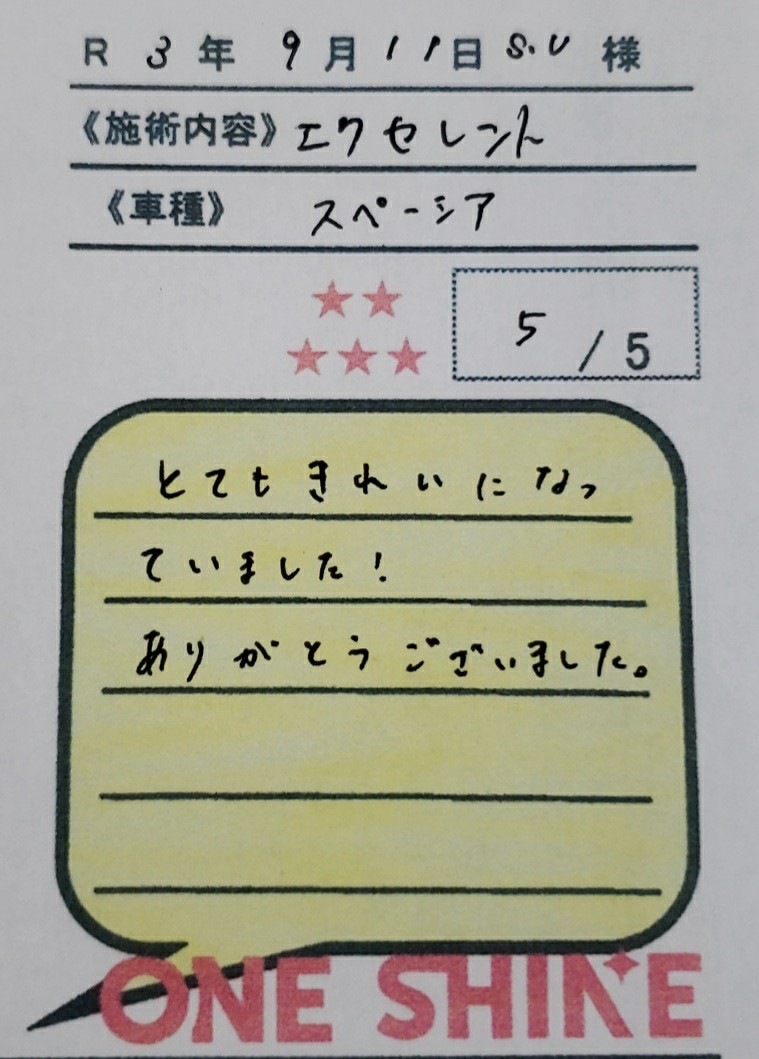 R 3年 9月 11日 S.U 様
《施術内容》エクセレント
《車種》 スペーシア
5 / 5
とてもきれいになっ
ていました!
ありがとうございました。
ONE SHINE